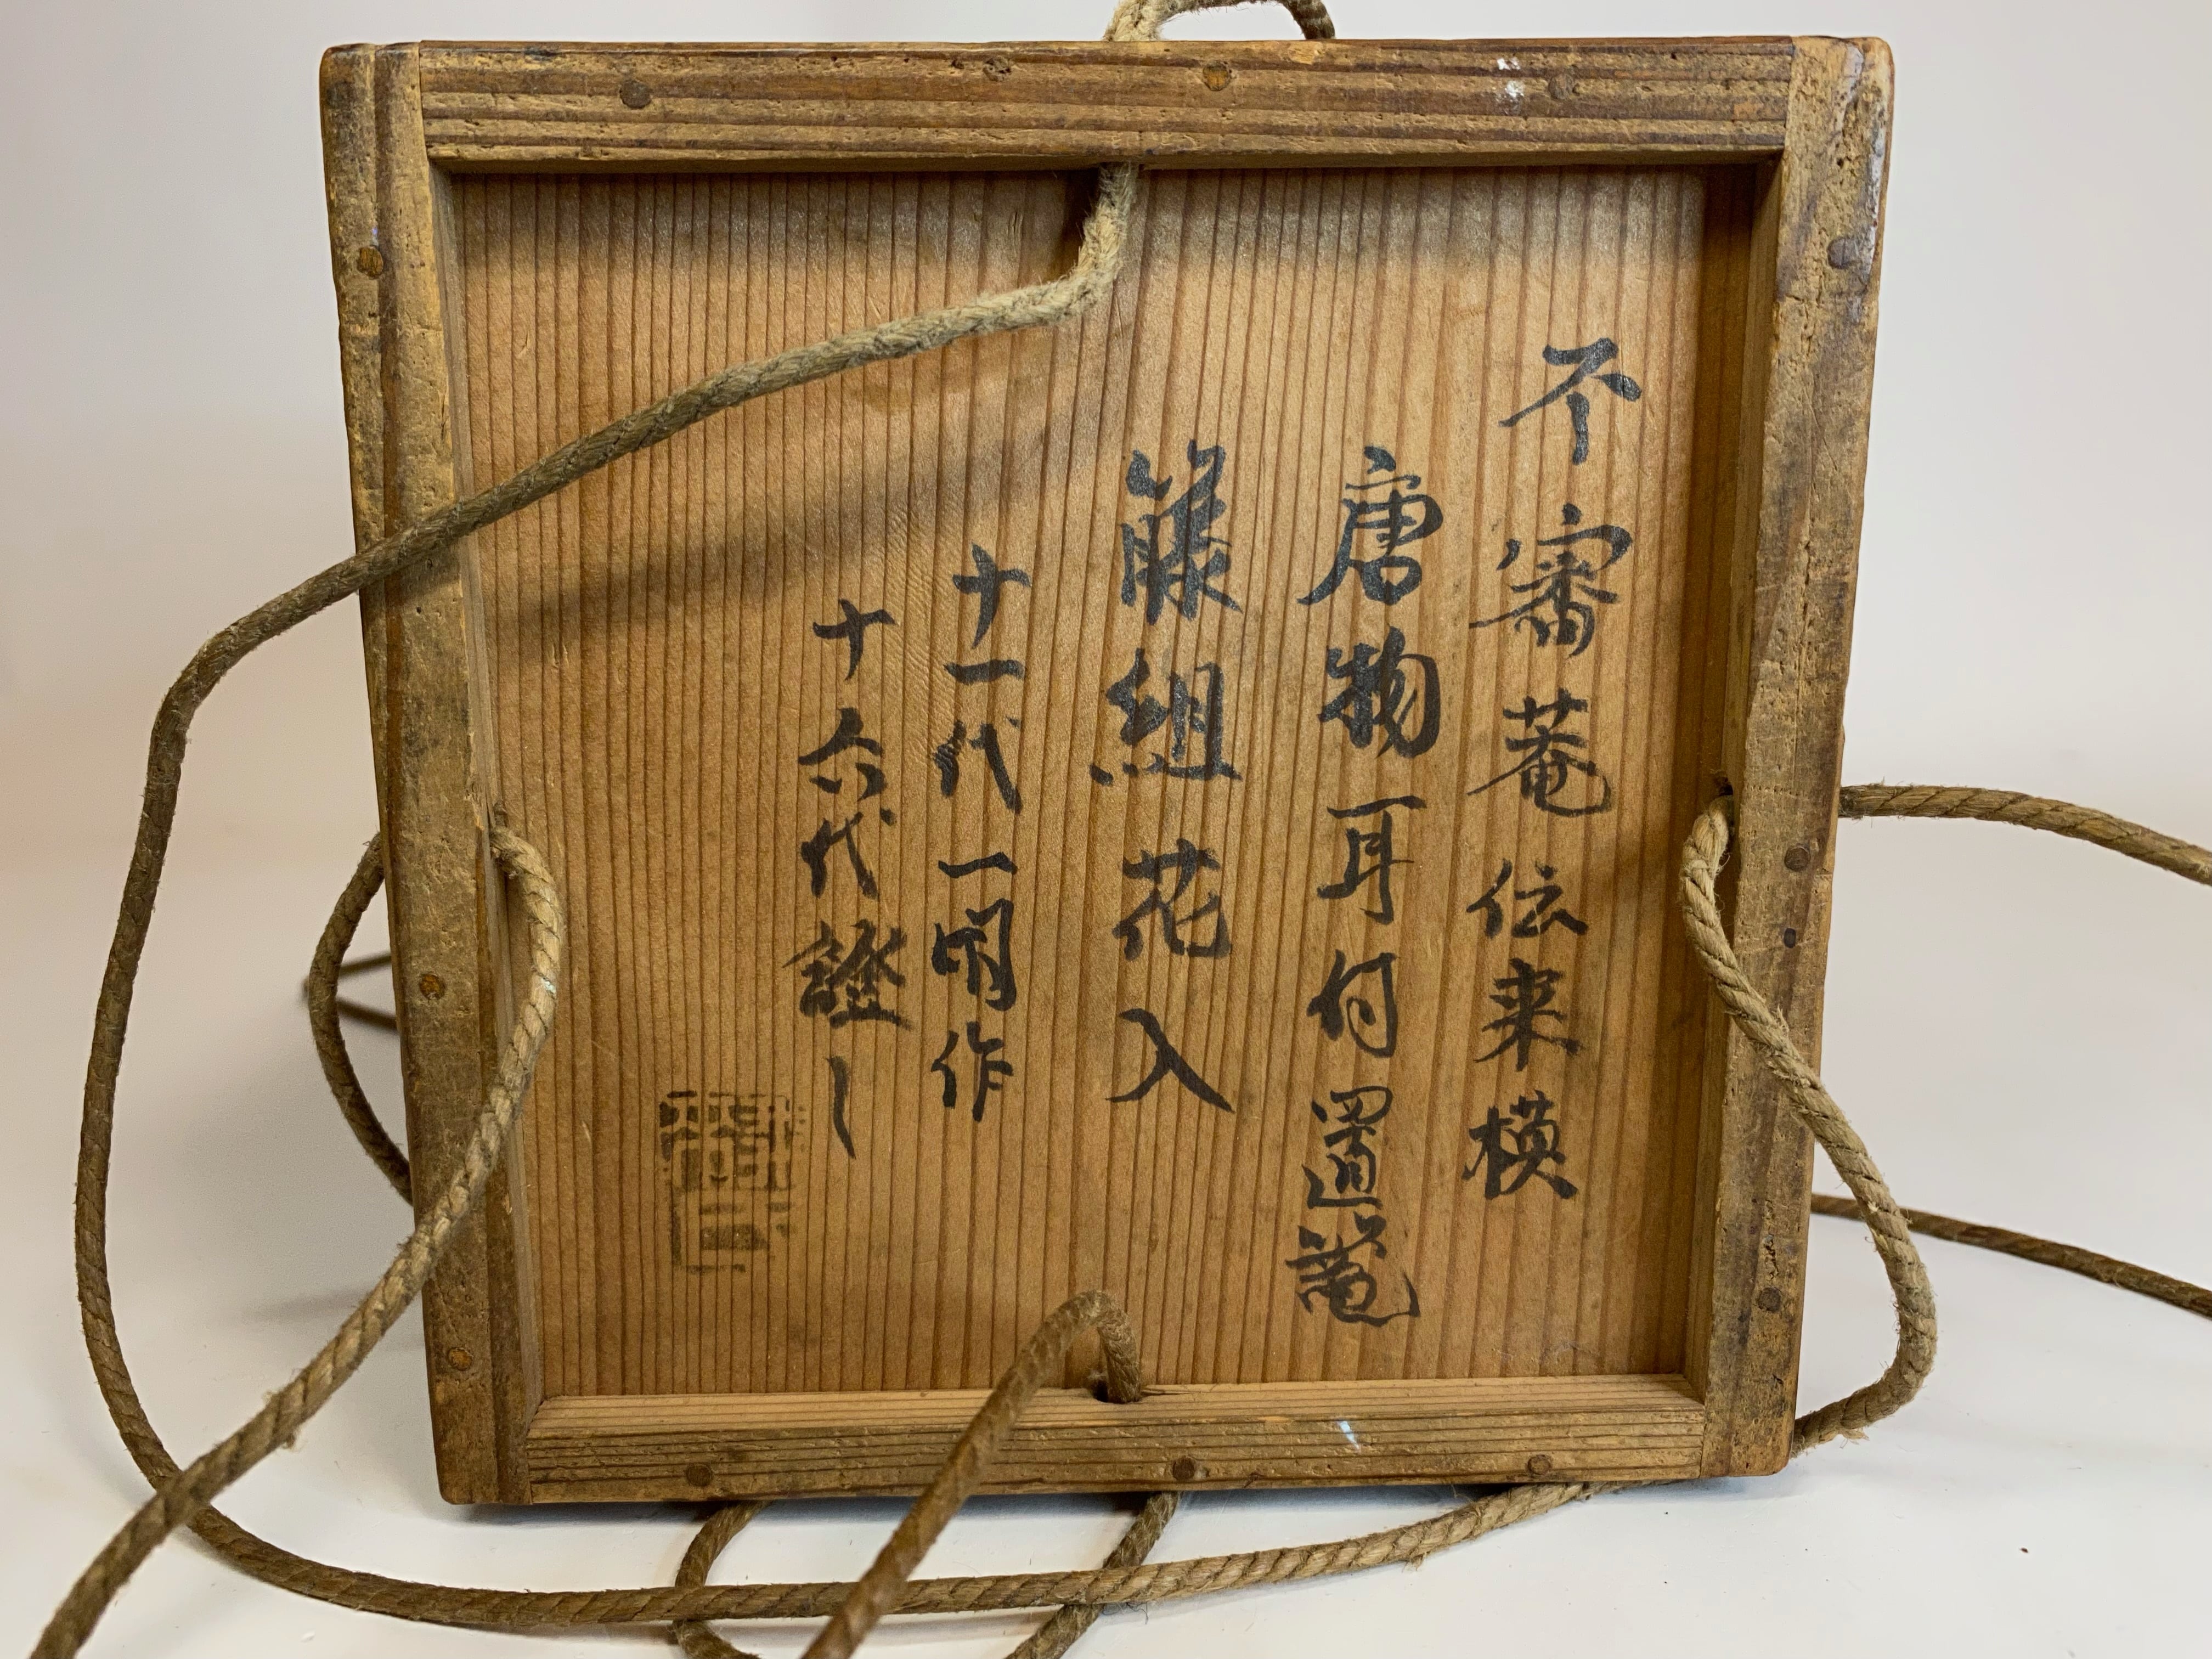 不審菴伝来模
唐物耳付置籠
籐組花入
十一代一閑作
十六代證し